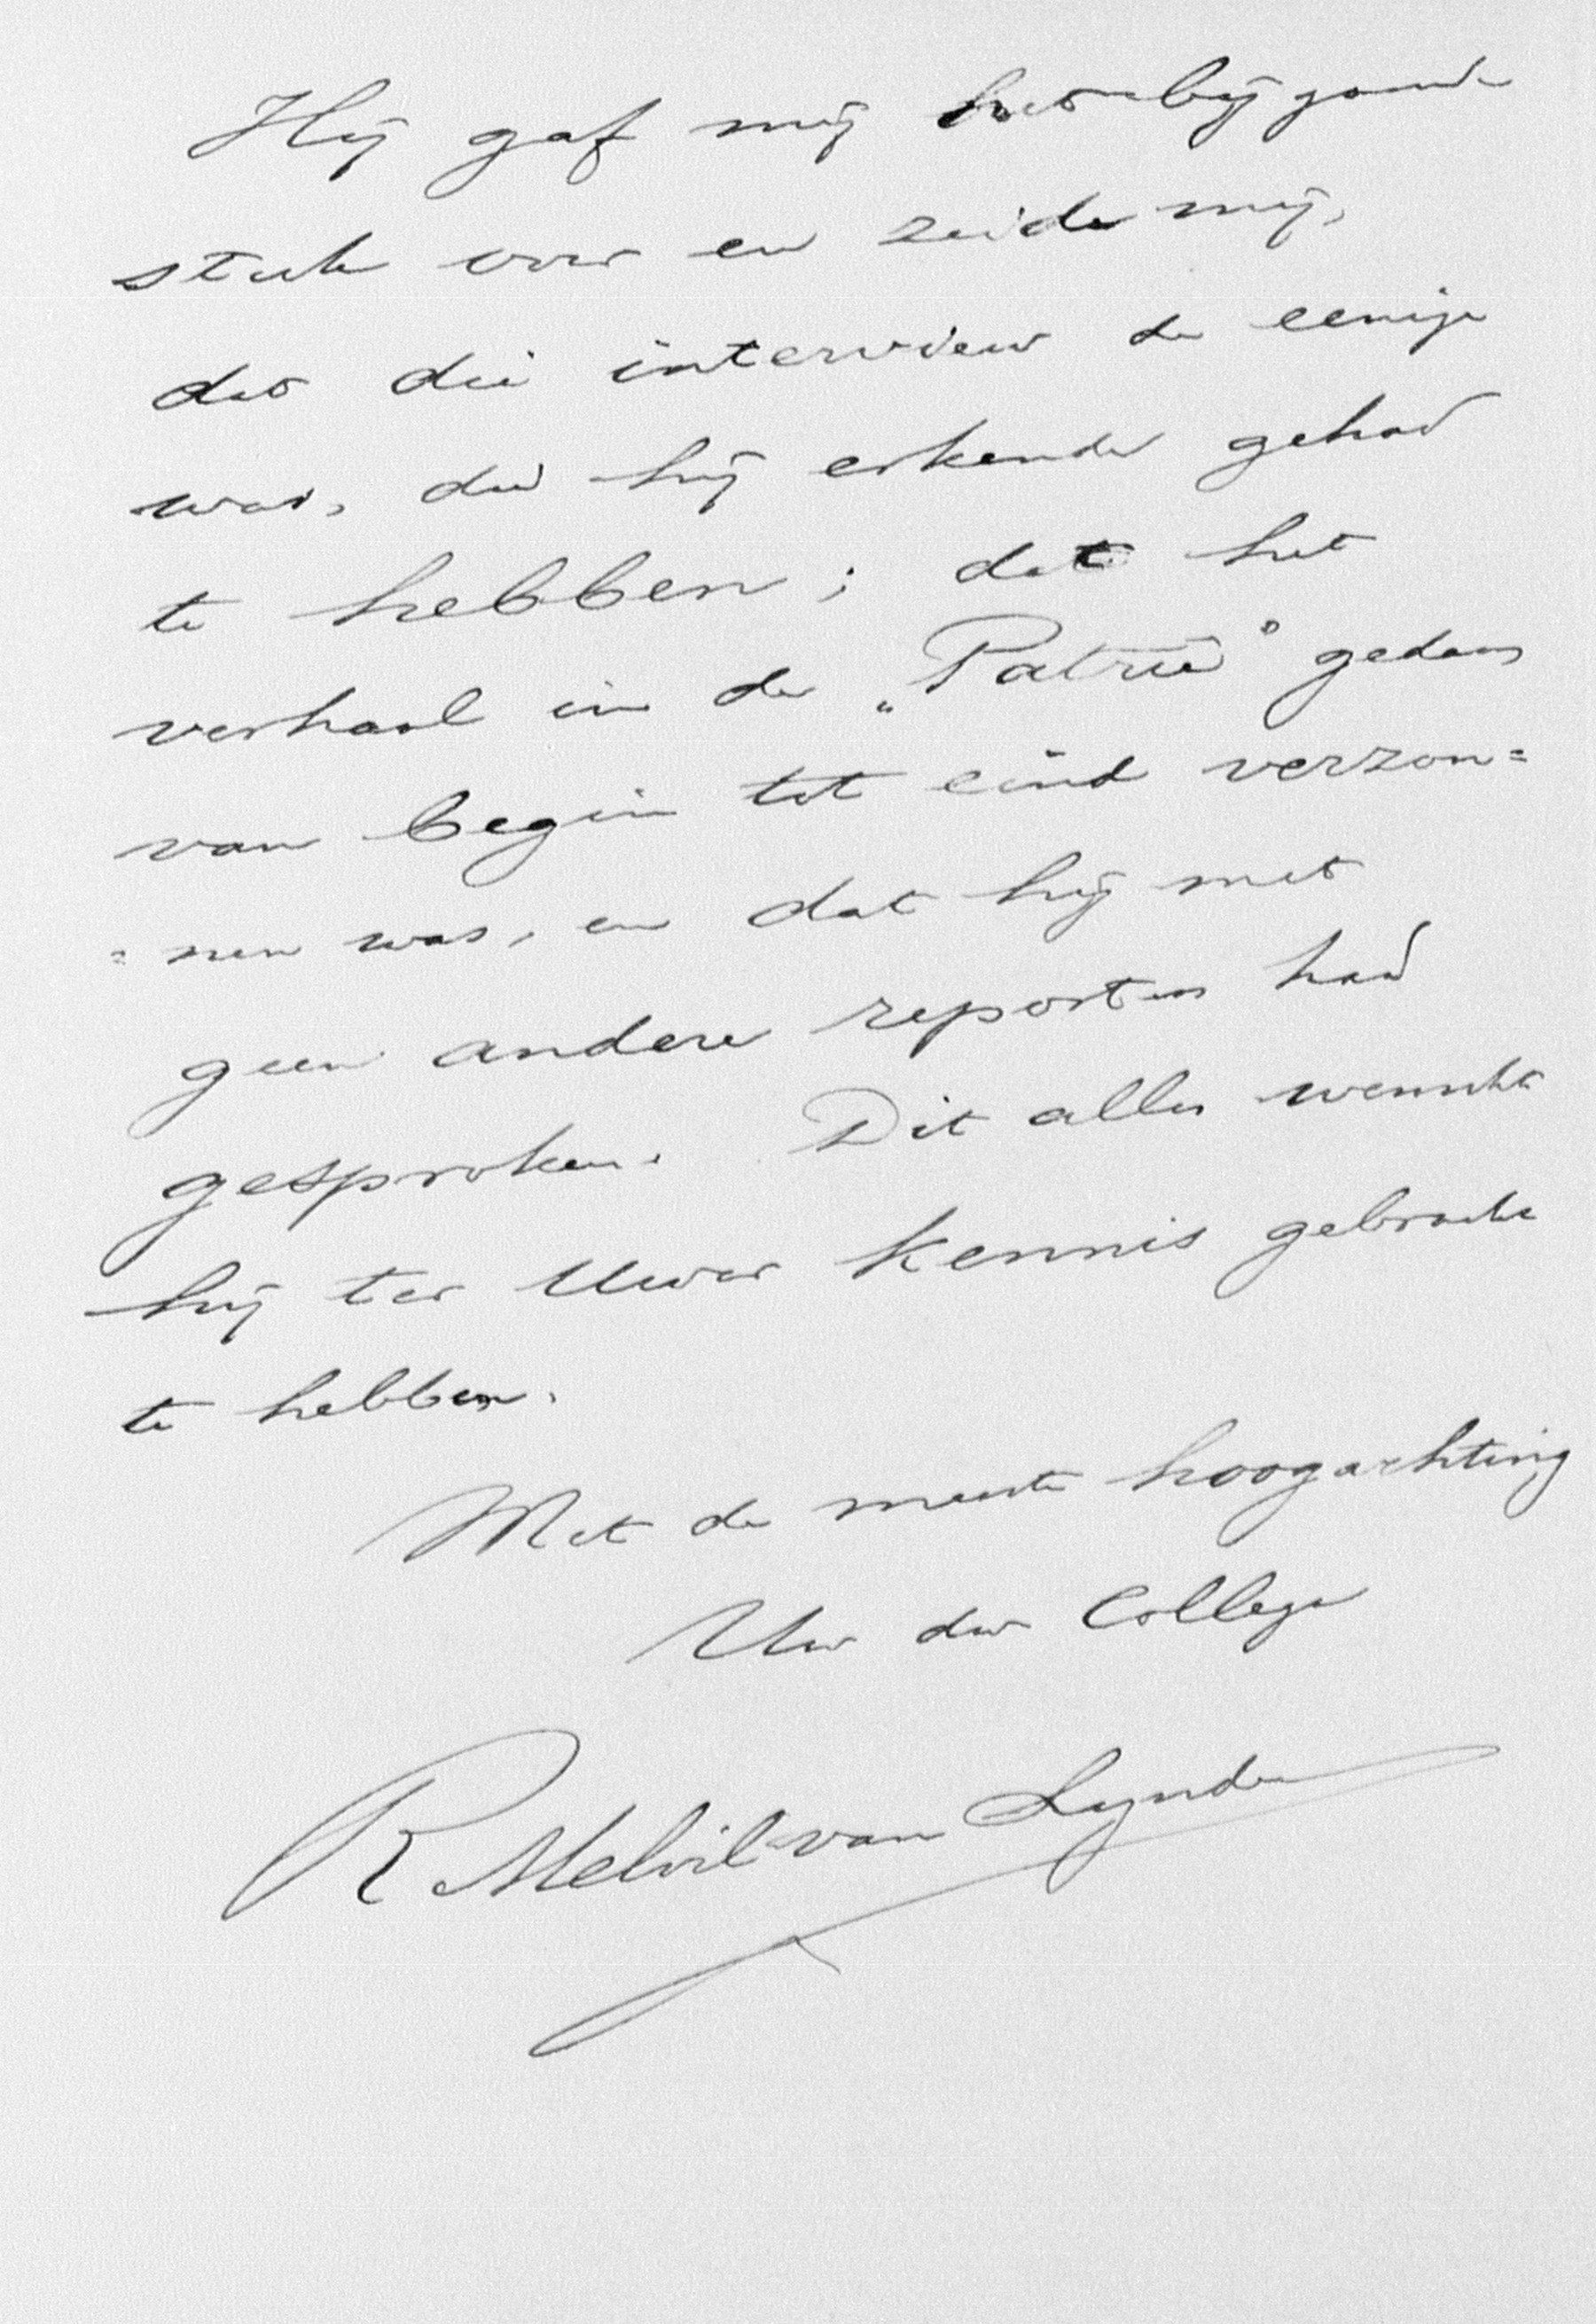 Hij gaf mij het bijgaande
stuk voor en zeide mij,
dat die interview de eenige
was, die hij erkende gehad
te hebben; dat het
verhaal in de „Patrie" gedaan
van begin tot eind verzon=
=nen was, en dat hij met
geen andere reporters had
gesproken. Dit alles wenschte
hij ter Uwer kennis gebracht
te hebben.
Met de meeste hoogachting
Uw dw College
R Melvil van Lynden